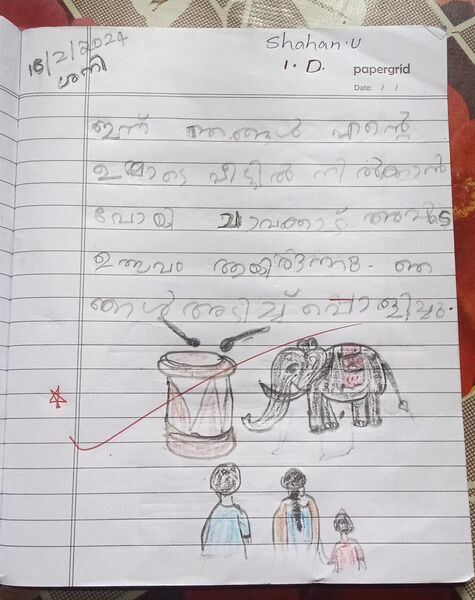 18/2/2024
ശനി
Shahan.U
1. D.
papergrid
Date: / /
ഇന്ന് ഞങ്ങൾ എൻ്റെ
വീട്ടിൽ നിൽക്കാൻ
പോയി ചാവക്കാട്
ഉത്സവം ആയിരുന്നു. ഞ
ങ്ങൾ അടിച്ച് പൊളിച്ചു.